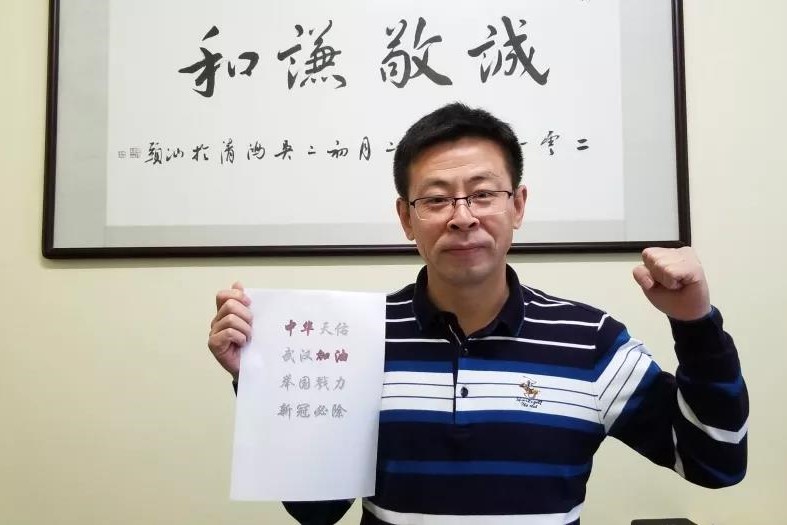 誠敬謙和
二零一 二月初二吴鸿清於汕頭
中华天佑
武汉加油
举国戮力
新冠必除